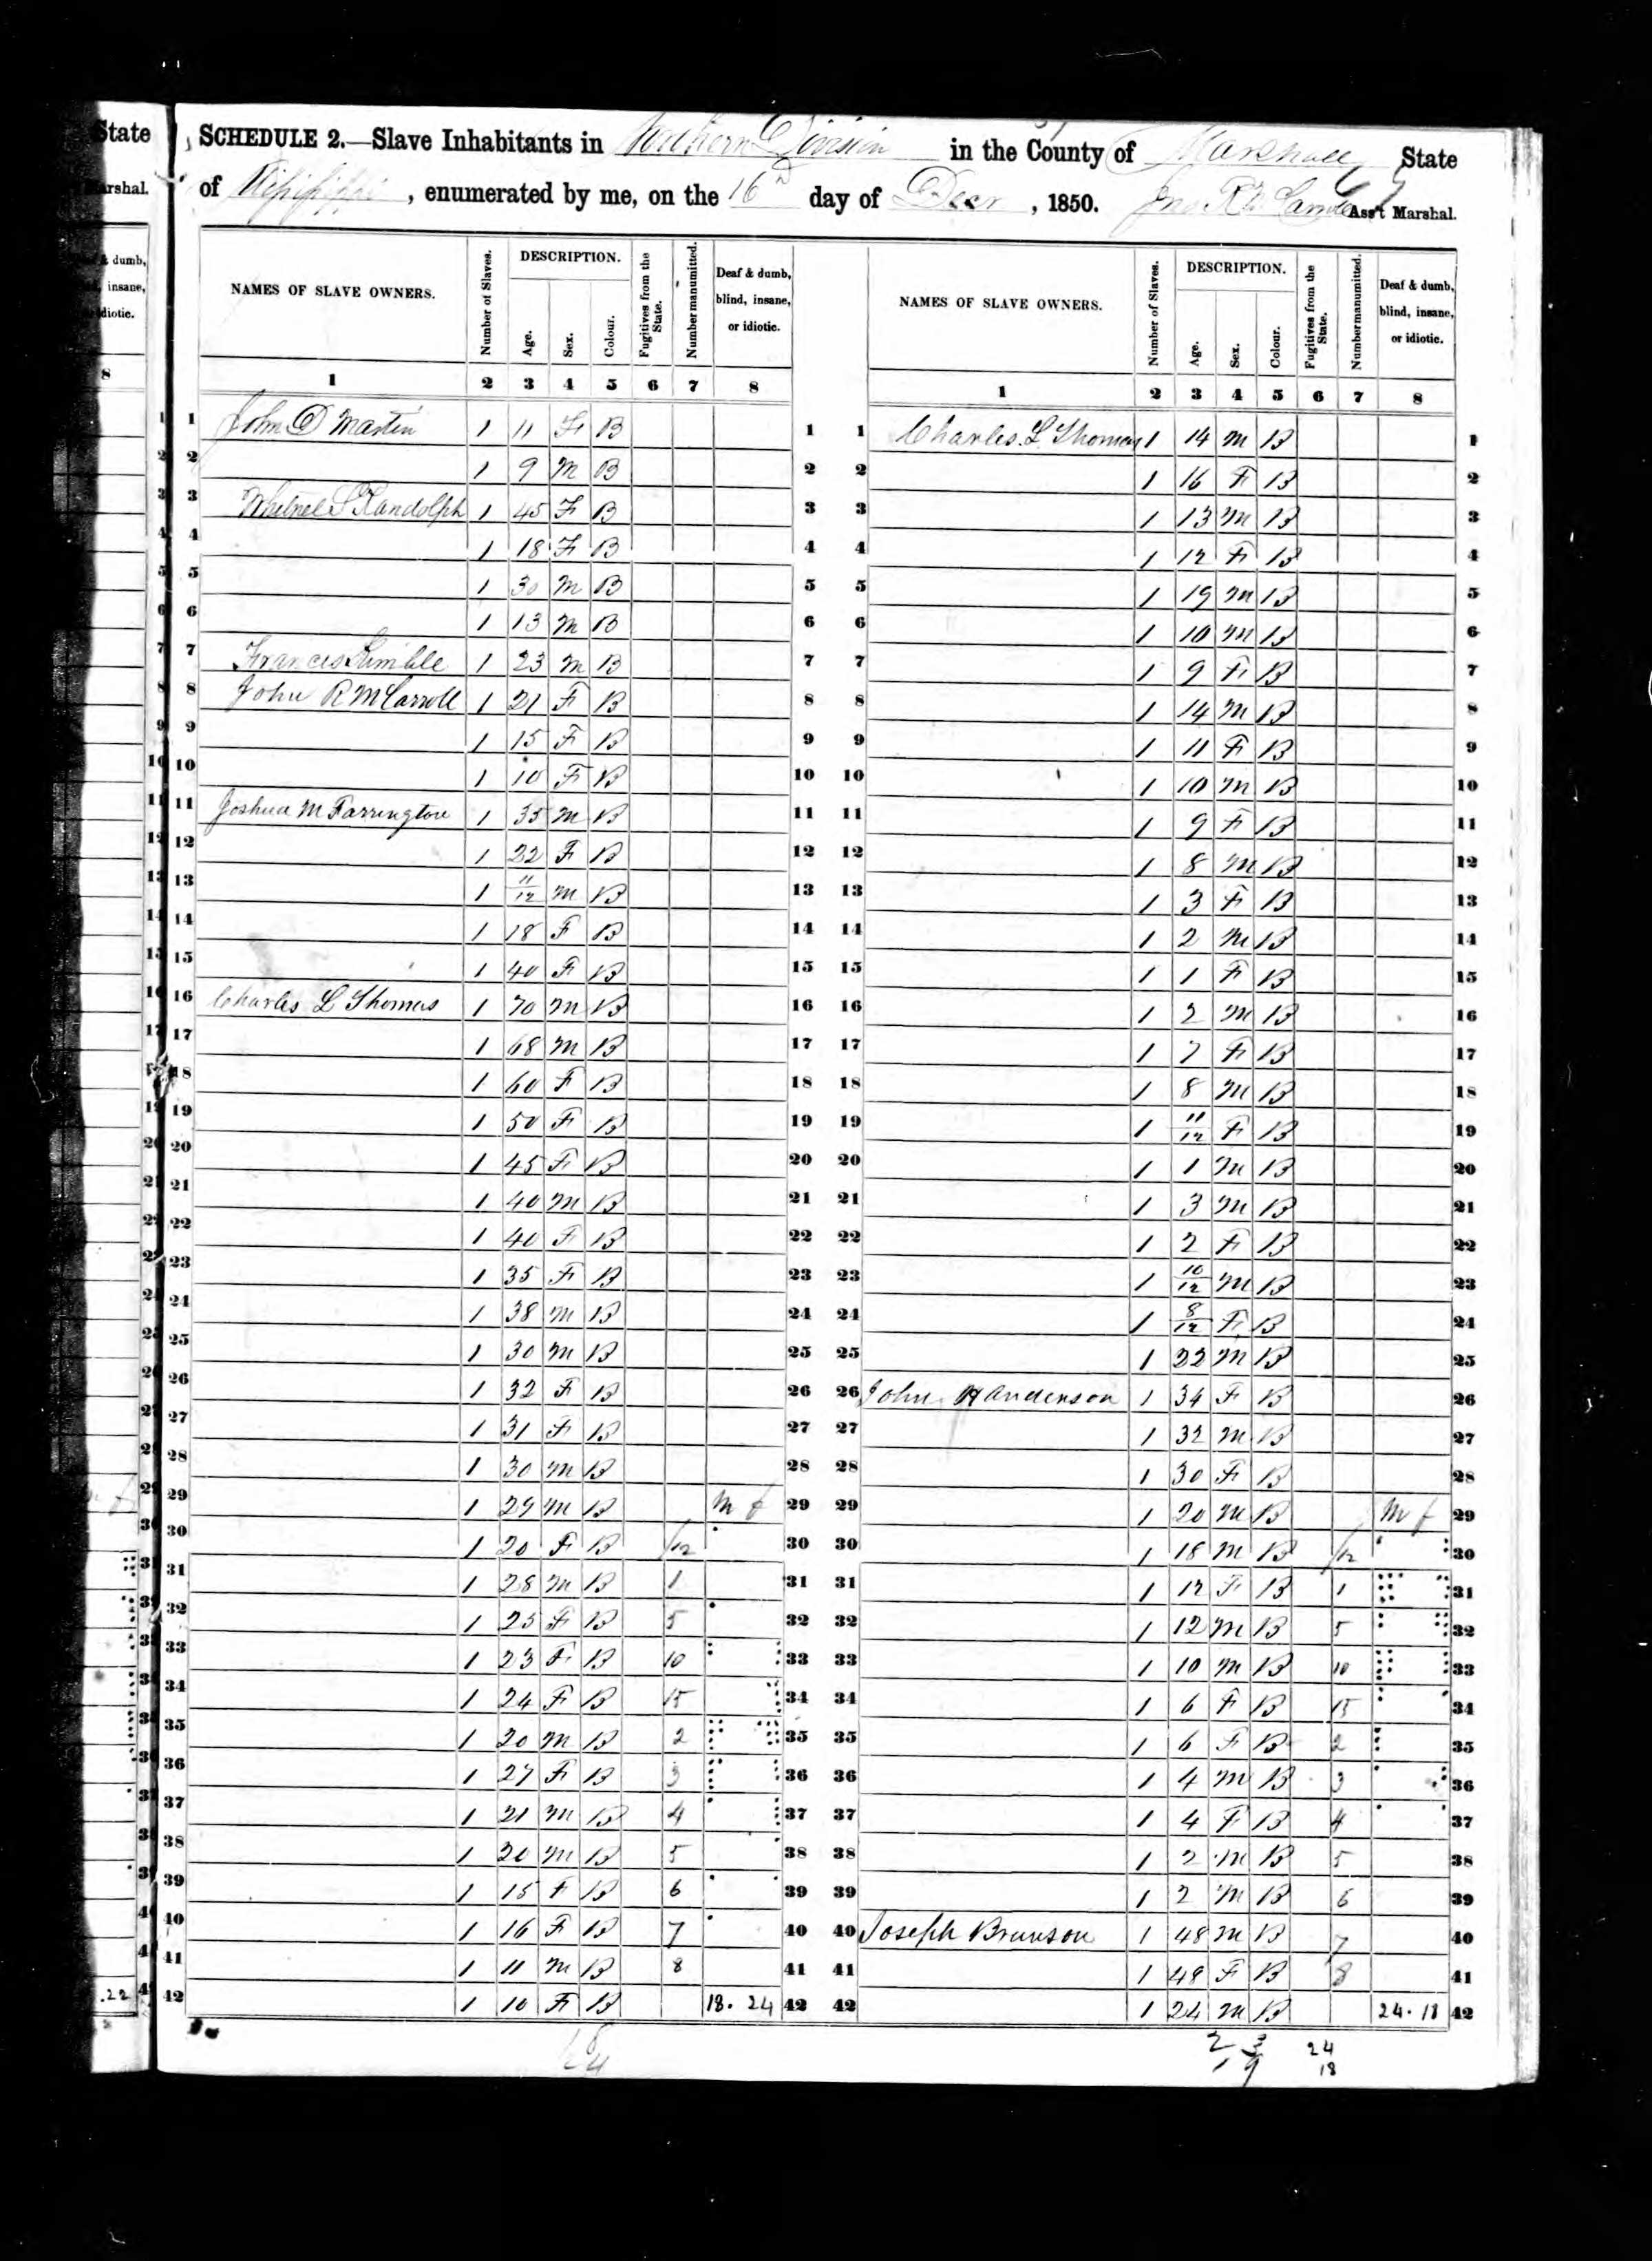 SCHEDULE 2.—Slave Inhabitants in Northern Division in the County of Marshall State
of Mississippi, enumerated by me, on the 16th day of Decr, 1850. Jno R Ass't Marshal.
NAMES OF SLAVE OWNERS. Number of Slaves. DESCRIPTION. Age. Sex. Colour. Fugitives from the State. Number manumitted. Deaf & dumb, blind, insane, or idiotic. NAMES OF SLAVE OWNERS. Number of Slaves. DESCRIPTION. Age. Sex. Colour. Fugitives from the State. Number manumitted. Deaf & dumb, blind, insane, or idiotic.
1 2 3 4 5 6 7 8 1 2 3 4 5 6 7 8
1 John D Martin 1 11 F B 1 1 Charles. L Thomas 1 14 M B 1
2 1 9 M B 2 2 1 16 F B 2
3 Randolph 1 45 F B 3 3 1 13 M B 3
4 1 18 F B 4 4 1 12 F B 4
5 1 30 M B 5 5 1 19 M B 5
6 1 13 M B 6 6 1 10 M B 6
7 Francis Kimble 1 23 M B 7 7 1 9 F B 7
8 John R McCarroll 1 21 F B 8 8 1 14 M B 8
9 1 15 F B 9 9 1 11 F B 9
10 1 10 F B 10 10 1 10 M B 10
11 Joshua M Farrington 1 35 M B 11 11 1 9 F B 11
12 1 22 F B 12 12 1 8 M B 12
13 1 11/12 M B 13 13 1 3 F B 13
14 1 18 F B 14 14 1 2 M B 14
15 1 40 F B 15 15 1 1 F B 15
16 Charles L Thomas 1 70 M B 16 16 1 2 M B 16
17 1 68 M B 17 17 1 7 F B 17
18 1 60 F B 18 18 1 8 M B 18
19 1 50 F B 19 19 1 11/12 F B 19
20 1 45 F B 20 20 1 1 M B 20
21 1 40 M B 21 21 1 3 M B 21
22 1 40 F B 22 22 1 2 F B 22
23 1 35 F B 23 23 1 10/12 M B 23
24 1 38 M B 24 24 1 8/12 F B 24
25 1 30 M B 25 25 1 22 M B 25
26 1 32 F B 26 26 John H Anderson 1 34 F B 26
27 1 31 F B 27 27 1 32 M B 27
28 1 30 M B 28 28 1 30 F B 28
29 1 29 M B m f 29 29 1 20 M B m f 29
30 1 20 F B /12 30 30 1 18 M B /12 30
31 1 28 M B 1 31 31 1 12 F B 1 31
32 1 25 F B 5 32 32 1 12 M B 5 32
33 1 23 F B 10 33 33 1 10 M B 10 33
34 1 24 F B 15 34 34 1 6 F B 15 34
35 1 20 M B 2 35 35 1 6 F B 2 35
36 1 27 F B 3 36 36 1 4 M B 3 36
37 1 21 M B 4 37 37 1 4 F B 4 37
38 1 20 M B 5 38 38 1 2 M B 5 38
39 1 15 F B 6 39 39 1 2 M B 6 39
40 1 16 F B 7 40 40 Joseph Brunson 1 48 M B 7 40
41 1 11 M B 8 41 41 1 48 F B 8 41
42 1 10 F B 18. 24 42 42 1 24 M B 24. 18 42
18 2 3 24
24 1 9 18